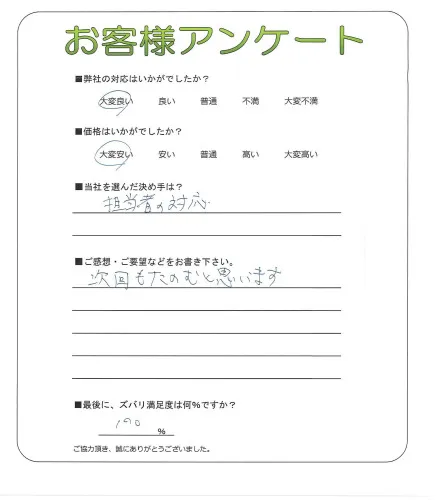 お客様アンケート
■弊社の対応はいかがでしたか？
大変良い 良い 普通 不満 大変不満
■価格はいかがでしたか？
大変安い 安い 普通 高い 大変高い
■当社を選んだ決め手は？
担当者の対応
■ご感想・ご要望などをお書き下さい。
次回もたのむと思います
■最後に、ズバリ満足度は何％ですか？
100 ％
ご協力頂き、誠にありがとうございました。